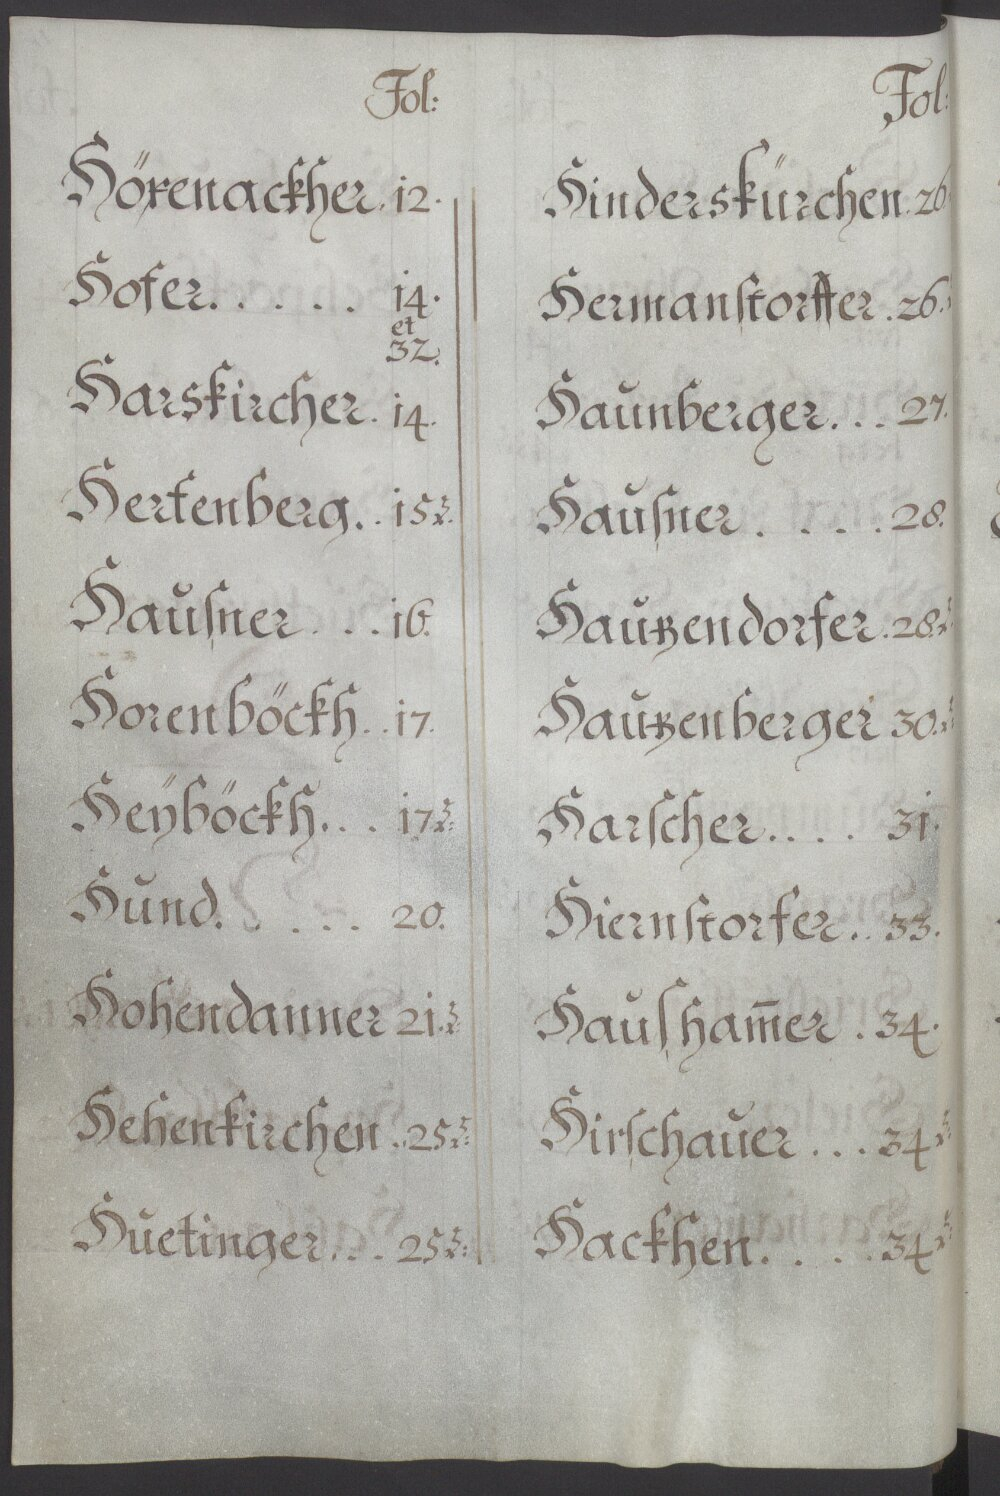 Fol:
Höxenackher. 12.
Hofer. . . . . . 14.
et
32.
Harskircher. 14.
Hertenberg. . 15
Hausner . . . 16.
Horenböckh. . 17.
Heÿböckh. . . 17
Hund. . . . . 20.
Hohendanner 21.
Hehenkirchen . 25
Huetinger . . . 25
Fol:
Hinderskürchen. 26
Hermanstorffer . 26.
Haunberger. . . 27.
Hausner . . . . 28.
Hautzendorfer. 28.
Hautzenberger 30.
Harscher. . . . 31.
Hiernstorfer. . 33.
Hausham̄er . 34.
Hirschauer . . . 34
Hackhen. . . . . 34